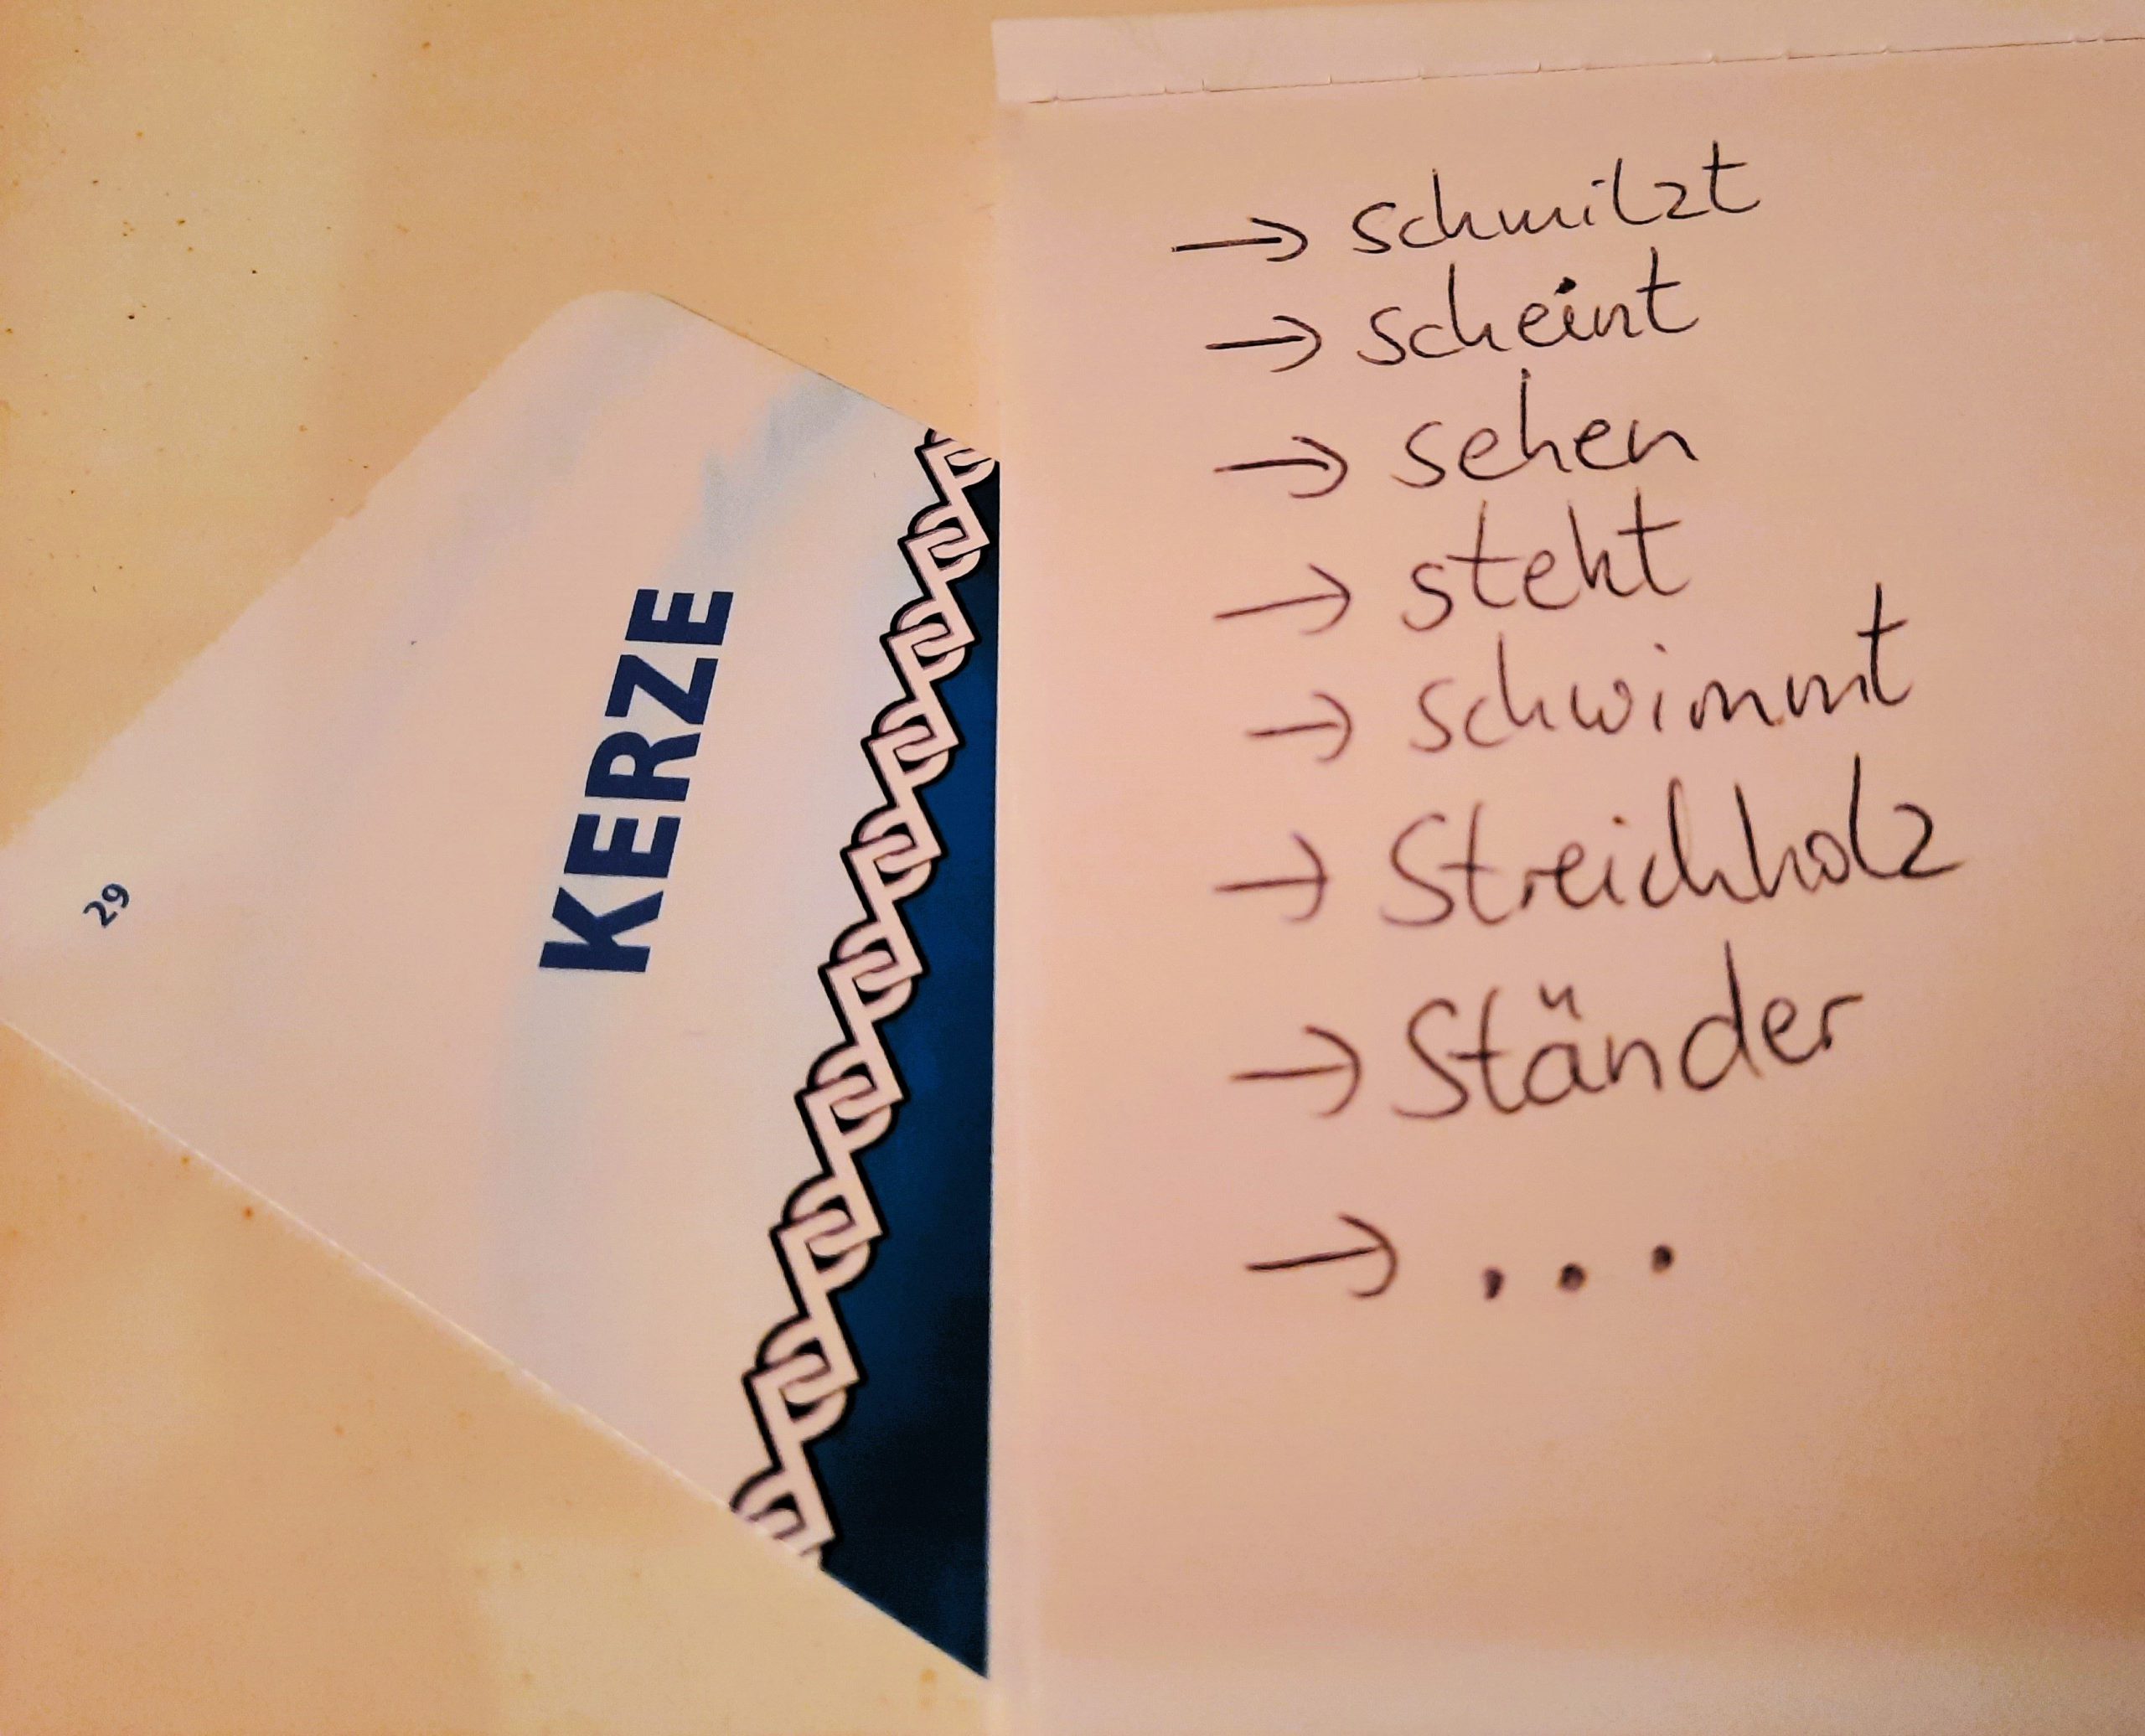 29
KERZE
→ schmilzt
→ scheint
→ sehen
→ steht
→ schwimmt
→ Streichholz
→ Ständer
→ ...